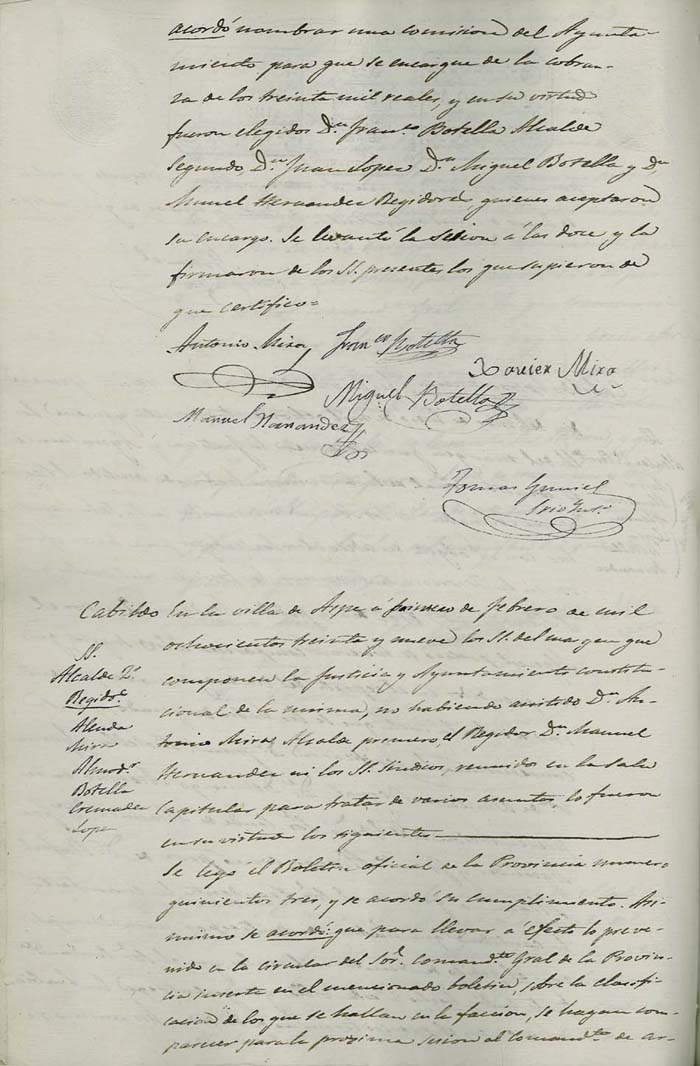 acordó nombrar una comision del Ayunta-
miento para que se encargue de la cobran-
za de los treinta mil reales, y en su virtud
fueron elegidos Dn. Franco. Botella Alcalde
segundo, Dn. Juan Lopez Dn. Miguel Botella y Dn.
Manuel Hernandez Regidores quienes aceptaron
su encargo. Se levantó la sesion á las doce y la
firmaron de los SS. presentes los que supieron de
que certifico=
Antonio Mira Franco Botella
Xavier Mira
Miguel Botella
Manuel Hernandez
Tomas
Srio
Cabildo En la villa de Aspe á primero de febrero de mil
ochocientos treinta y nueve los SS. del margen que
componen la Justicia y Ayuntamiento constitu-
cional de la misma, no habiendo asistido Dn. An-
tonio Mira Alcalde primero, el Regidor Dn. Manuel
Hernandez ni los SS. Sindicos, reunidos en la Sala
Capitular para tratar de varios asuntos, lo fueron
en su virtud los siguientes
SS.
Alcalde 2º
Regidos.
Alenda
Mira
Almodr.
Botella
Cremades
Lopez
Se leyó el Boletin oficial de la Provincia numero
quinientos tres, y se acordó su cumplimiento. Asi-
mismo se acordó: que para llevar á efecto lo preve-
nido en la circular del Sor. Comandte. Gral de la Provin-
cia inserta en el mencionado boletin, sobre la clasifi-
cacion de los que se hallan en la faccion, se hagan com-
parecer para la proxima sesion al Comandte. de ar-